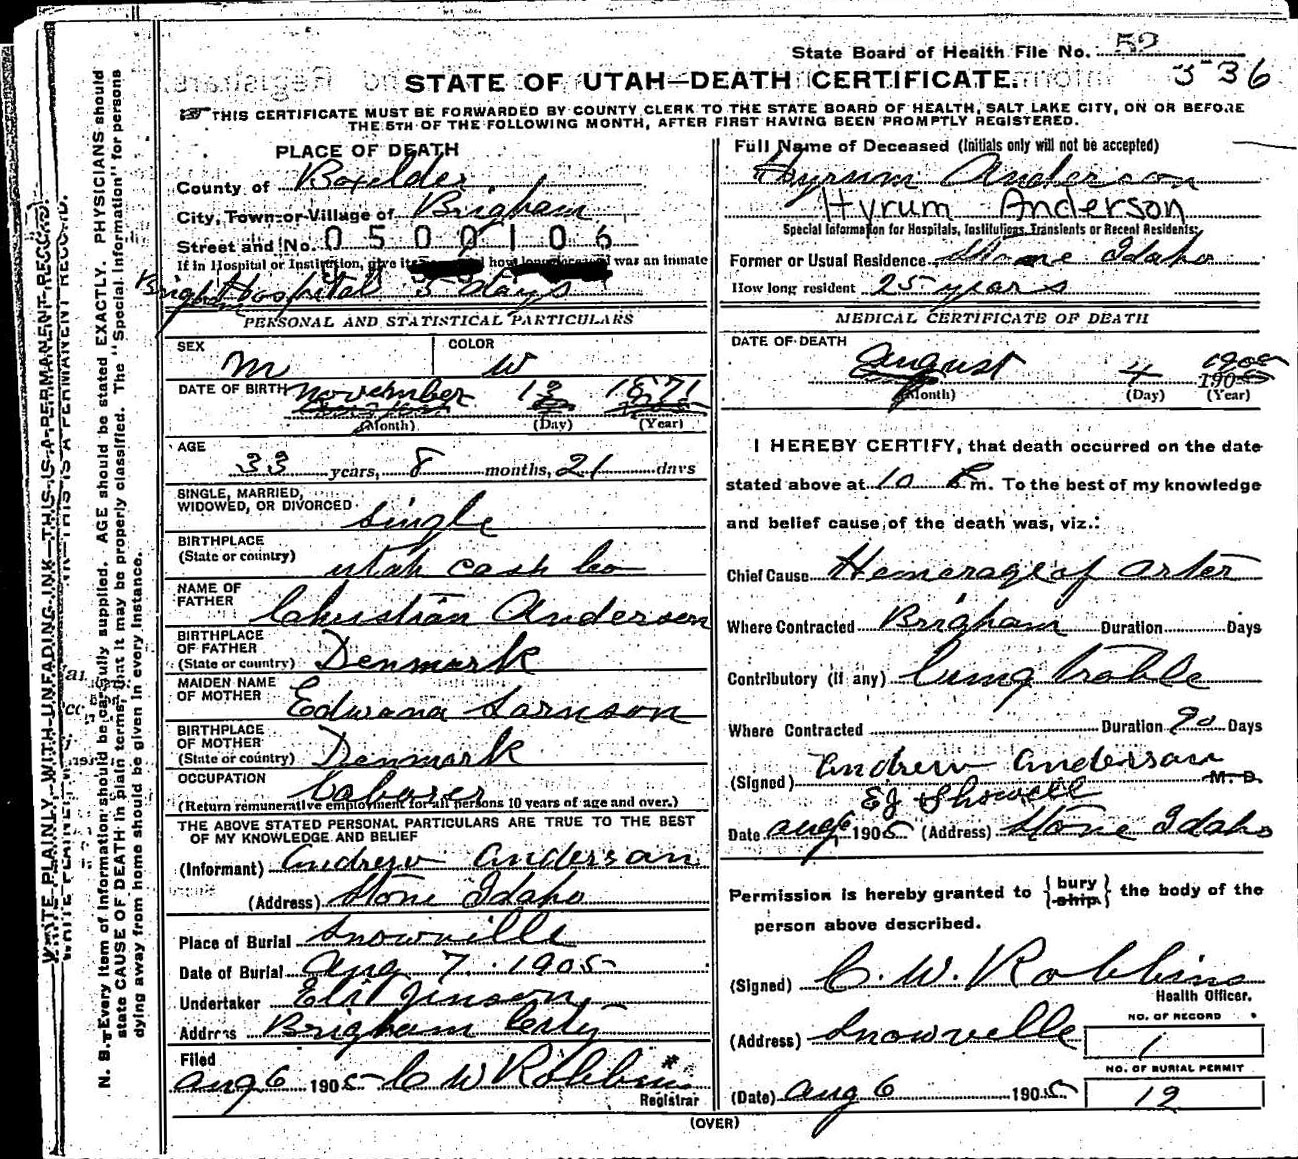 State Board of Health File No. 52
336
STATE OF UTAH—DEATH CERTIFICATE.
THIS CERTIFICATE MUST BE FORWARDED BY COUNTY CLERK TO THE STATE BOARD OF HEALTH, SALT LAKE CITY, ON OR BEFORE
THE 5TH OF THE FOLLOWING MONTH, AFTER FIRST HAVING BEEN PROMPTLY REGISTERED.
PLACE OF DEATH
County of Boxelder
City, Town or Village of Brigham
Street and No. 0500106
If in Hospital or Institution, give its how long was an inmate
Brigham Hospital 5 days
PERSONAL AND STATISTICAL PARTICULARS
SEX M COLOR W
DATE OF BIRTH November 13 1871
(Month) (Day) (Year)
AGE
33 years, 8 months, 21 days
SINGLE, MARRIED,
WIDOWED, OR DIVORCED single
BIRTHPLACE
(State or country) Utah Cash Co
NAME OF
FATHER Christian Anderson
BIRTHPLACE
OF FATHER
(State or country) Denmark
MAIDEN NAME
OF MOTHER Edwana Sarnson
BIRTHPLACE
OF MOTHER
(State or country) Denmark
OCCUPATION Laborer
(Return remunerative employment for all persons 10 years of age and over.)
THE ABOVE STATED PERSONAL PARTICULARS ARE TRUE TO THE BEST
OF MY KNOWLEDGE AND BELIEF
(Informant) Andrew Anderson
(Address) Stone Idaho
Place of Burial Snowville
Date of Burial Aug 7 1905
Undertaker Eli Jinson
Address Brigham City
Filed
Aug 6 1905 C W Robbins
Registrar
Full Name of Deceased (Initials only will not be accepted)
Hyrum Anderson
Hyrum Anderson
Special Information for Hospitals, Institutions, Transients or Recent Residents:
Former or Usual Residence Stone Idaho
How long resident 25 years
MEDICAL CERTIFICATE OF DEATH
DATE OF DEATH
August 4 1905
(Month) (Day) (Year)
I HEREBY CERTIFY, that death occurred on the date
stated above at 10 P m. To the best of my knowledge
and belief cause of the death was, viz.:
Chief Cause Hemorage of arter
Where Contracted Brigham Duration Days
Contributory (if any) lung trable
Where Contracted Duration 90 Days
(Signed) Andrew Anderson M. D.
EJ Showell
Date Aug 6 1905 (Address) Stone Idaho
Permission is hereby granted to { bury ship } the body of the
person above described.
(Signed) C. W. Robbins
Health Officer.
(Address) Snowville
NO. OF RECORD
1
NO. OF BURIAL PERMIT
19
(Date) Aug 6 1905
(OVER)
WRITE PLAINLY, WITH UNFADING INK—THIS IS A PERMANENT RECORD.
N. B.—Every item of information should be carefully supplied. AGE should be stated EXACTLY. PHYSICIANS should
state CAUSE OF DEATH in plain terms, that it may be properly classified. The "Special Information" for persons
dying away from home should be given in every instance.